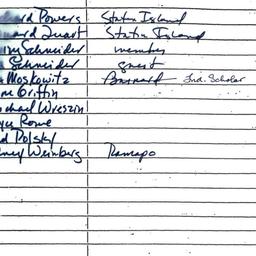 ard Powers Staten Island
ard Quart Staten Island
Schneider member
Schneider guest
Moskowitz Barnard Ind. Scholar
Griffin
chael Wreszin
Rowe
d Polsky
ney Weinberg Ramapo